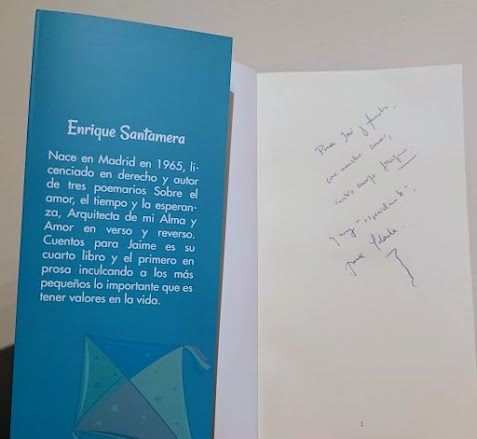 Enrique Santamera
Nace en Madrid en 1965, li-
cenciado en derecho y autor
de tres poemarios Sobre el
amor, el tiempo y la esperan-
za, Arquitecta de mi Alma y
Amor en verso y reverso.
Cuentos para Jaime es su
cuarto libro y el primero en
prosa inculcando a los más
pequeños lo importante que es
tener valores en la vida.
Para y familia,
con mucho
para
1